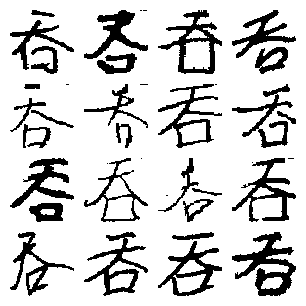 吞吞吞吞
吞吞吞吞
吞吞吞吞
吞吞吞吞